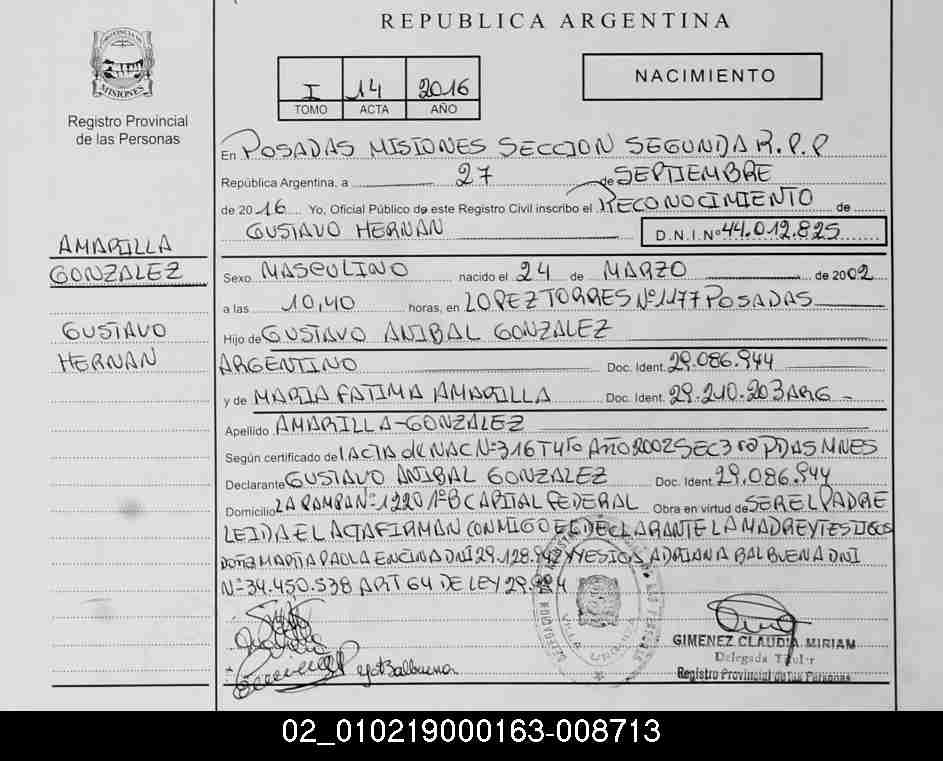 REPUBLICA ARGENTINA
PROVINCIA DE
MISIONES
Registro Provincial
de las Personas
I 14 2016
TOMO ACTA AÑO
NACIMIENTO
En POSADAS MISIONES SECCION SEGUNDA R.P.P
República Argentina, a 27 de SEPTIEMBRE
de 2016 Yo, Oficial Público de este Registro Civil inscribo el RECONOCIMIENTO de
GUSTAVO HERNAN D.N.I.Nº 44.012.825
AMARILLA
GONZALEZ
GUSTAVO
HERNAN
Sexo MASCULINO nacido el 24 de MARZO de 2002
a las 10,40 horas, en LOPEZ TORRES Nº 1177 POSADAS
Hijo de GUSTAVO ANIBAL GONZALEZ
ARGENTINO Doc. Ident. 29.086.944
y de MARIA FATIMA AMARILLA Doc. Ident. 29.210.203 ARG
Apellido AMARILLA-GONZALEZ
Según certificado de ACTA de NAC Nº 316 T 4to AÑO 2002 SEC 3 PDAS MNES
Declarante GUSTAVO ANIBAL GONZALEZ Doc. Ident. 29.086.944
Domicilio LA PAMPA Nº 1220 1º B CAPITAL FEDERAL Obra en virtud de SER EL PADRE
LEIDA EL ACTA FIRMAN CONMIGO EL DECLARANTE LA MADRE Y TESTIGOS
DOÑA MARIA PAULA ENCINA DNI 29.128. Y YESICA ADRIANA BALBUENA DNI
Nº 34.450.538 ART 64 DE LEY
VILLA URQUIZA
Balbuena
GIMENEZ CLAUDIA MIRIAM
Delegada Titular
Registro Provincial de las Personas
02_010219000163-008713